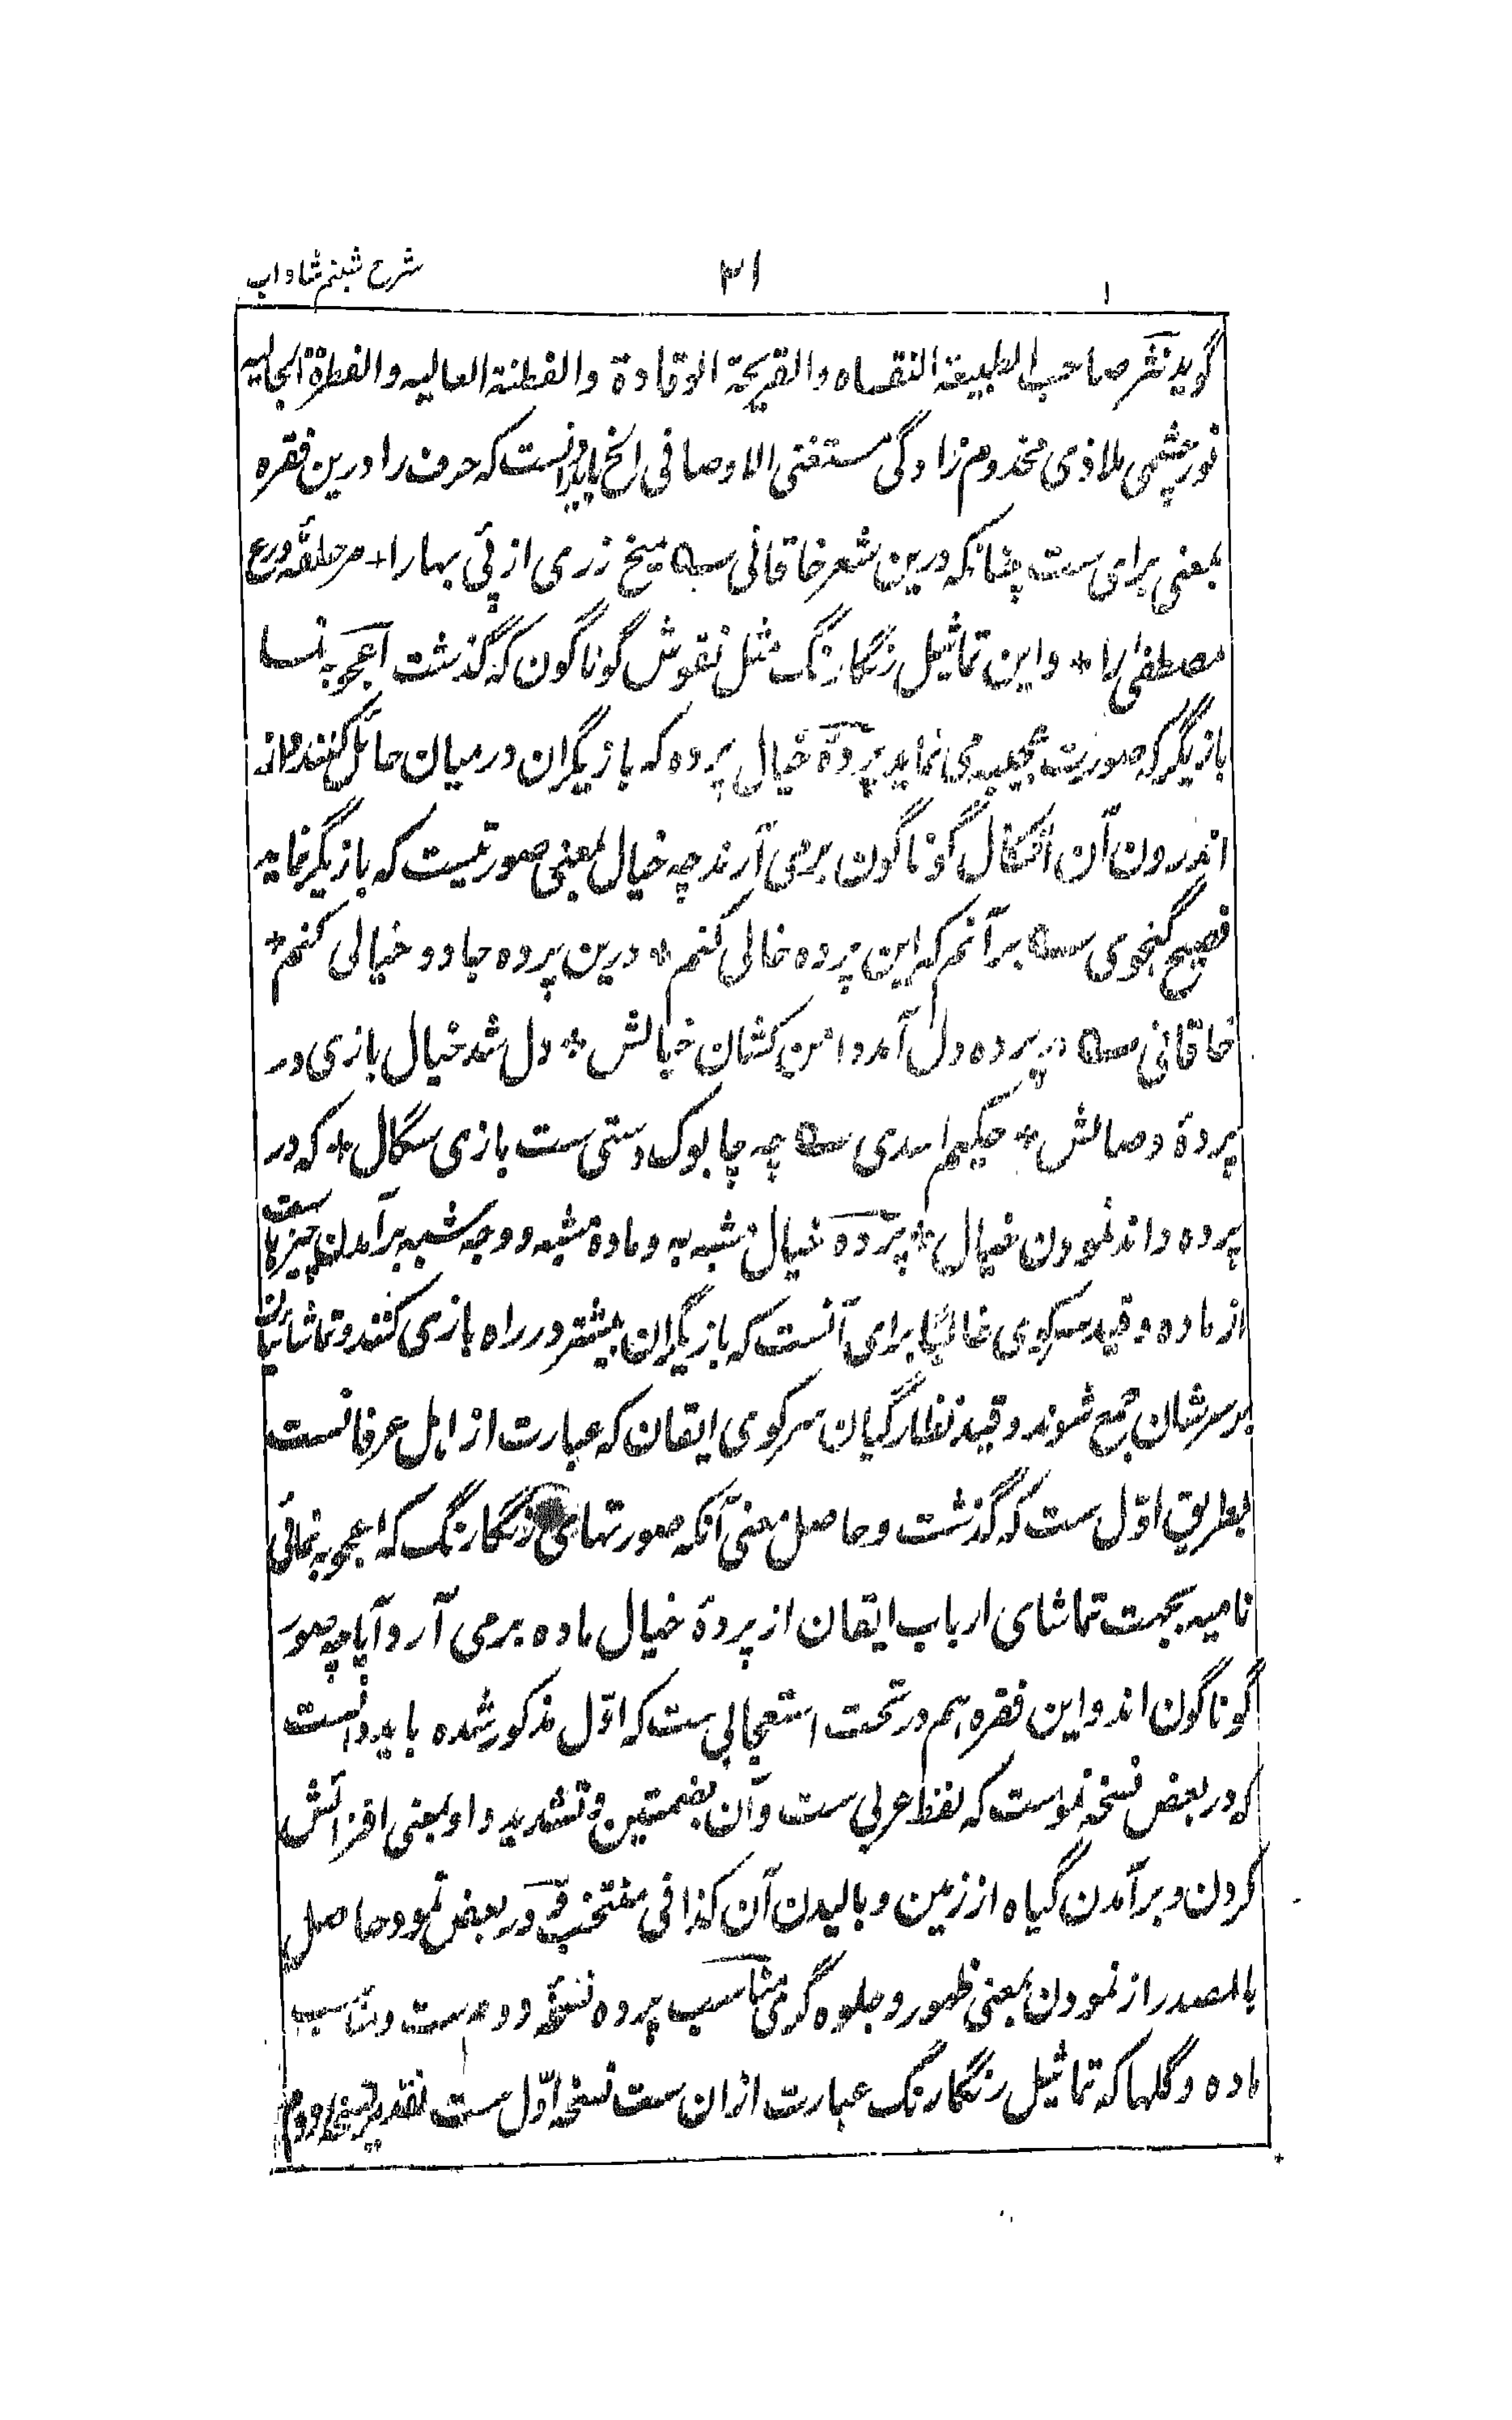 شرح شبنم شاداب
۳۱
گوید نثر صاحب الطبیعة النقاده والقریحة الوقادة والفطنة العالیه والفطرة الجالیه
نورچشمی ملاذی مخدوم زادگی مستغنی الاوصافی الخ باید دانست که حرف را درین فقره
بمعنی برای ست چنانکه درین شعر خاقانی ـه میخ زرمی از پئی بهارا + مر حلقه درع
مصطفی را * و این تماثیل رنگارنگ مثل نقوش گوناگون که گذشت اعجوبه نما
بازیگر که صورت عجیب می نماید پردۂ خیال پرده که بازیگران درمیان حائل کنند و از
اندرون آن اشکال گوناگون برمی آرند چه خیال بمعنی صورتیست که بازیگر نماید
فصیح گنجوی ـه برآنم که این پرده خالی کنم * درین پرده جادو خیالی کنم *
خاقانی ـه در پرده دل آمد دامن کشان خیالش * دل شد خیال بازی در
پردۂ وصالش * حکیم اسدی ـه چه چابوک دستی ست بازی سگال * که در
پرده داند نمودن خیال * پردۂ خیال مشبه به و ماده مشبه و وجه شبه برآمدن چیزها ست
از ماده و قید سرکوی غالبًا برای آنست که بازیگران بیشتر در راه بازی کنند و تماشائیان
بر سرشان جمع شوند و قید نظارگیان سرکوی ایقان که عبارت از اهل عرفانست
بطریق اوّل ست که گذشت و حاصل معنی آنکه صورتهای رنگارنگ که اعجوبه نمائی
نامیه بجهت تماشای ارباب ایقان از پردۂ خیال ماده برمی آرد آیا چه صور
گوناگون اند و این فقره هم در تحت استعجابی ست که اوّل مذکور شده باید دانست
که در بعض نسخه نموست که لفظ عربی ست و آن بضمتین و تشدید واو بمعنی افزائش
کردن و برآمدن گیاه از زمین و بالیدن آن کذا فی منتخب و در بعض نمود حاصل
بالمصدر از نمودن بمعنی ظهور و جلوه گری مناسب پرده نسخۂ دوم ست و مناسب
ماده و گلها که تماثیل رنگارنگ عبارت ازان ست نسخه اوّل ست